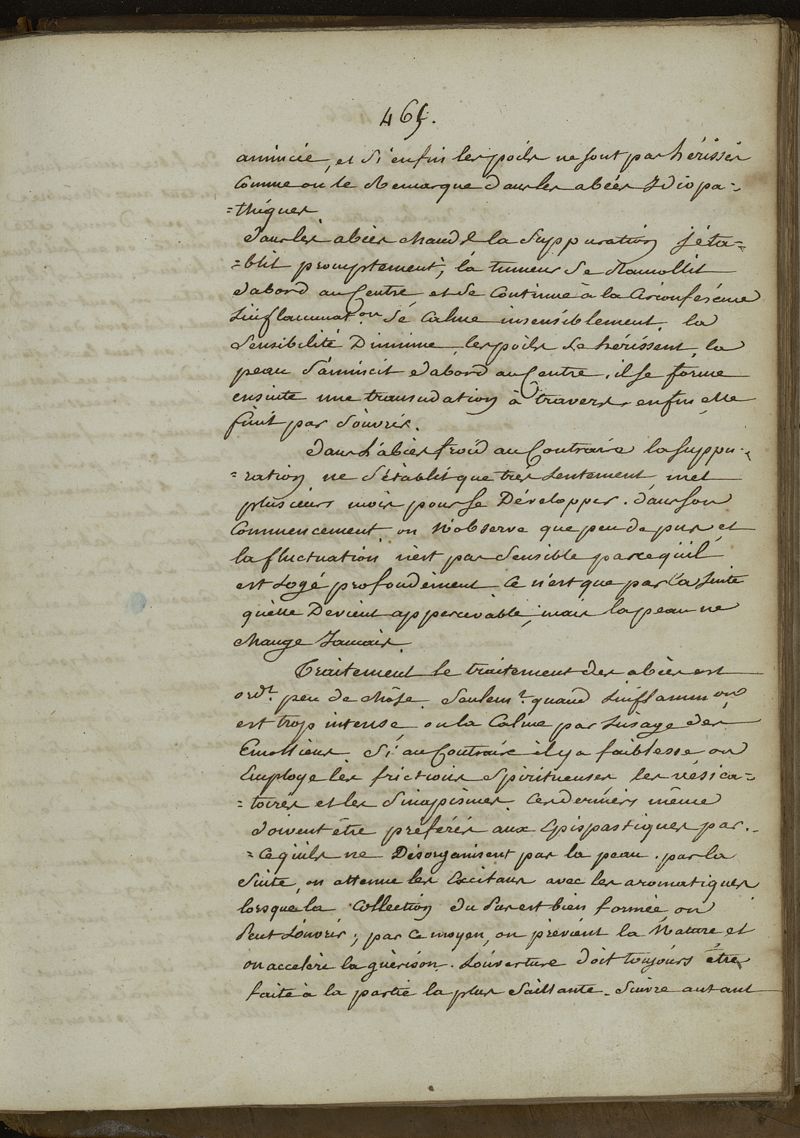 465.
amincie, et Si enfin les poils ne sont pas hérissés
comme on le Remarque dans les abcès Idiopa-
=thiques
Dans les abcès chauds la Suppuration s'éta-
=blit promptement, la tumeur Se Ramollit
d'abord au Centre et Se Continue à la Circonférence
L'inflammat.on Se Calme insensiblement. la
Sensibilité Diminue, les poils Se hérissent, la
peau S'amincit d'abord au Centre, il Se forme
ensuite une transudation à travers, enfin elle
finit par S'ouvrir.
Dans L'abcès froid au Contraire la Suppu-
=ration ne S'établit que très Lentement, met
plusieurs mois pour Se Développer. dans Son
Commencement on N'observe que peu de pus, et
la fluctuation n'est pas Sensible parcequ'il
est Logé profondement Ce n'est que par la Suite
qu'elle Devient appercevable, mais la peau ne
change Jamais.
Traitement le traitement des abcès est
ord.t peu de chôse. Seulem.t quand L'inflamm.on
est trop intense on la Calme par L'usage des
Emolliens. Si au Contraire il y a faiblesse on
Employe les frictions Spiritueuses les vésica-
=toires et les Sinapismes. Ces derniers même
doivent être préférés aux Epispastiques par-
=cequ'ils ne Désorganisent pas la peau. par la
Suite, on attenue les Excitans avec les aromatiques
lorsque la Collection du Pus est bien formée on
Peut L'ouvrir; par Ce moyen, on prévient la Nature et
on accelère la guérison. L'ouverture doit toujours être
faite à la partie la plus Saillante. Suivre autant